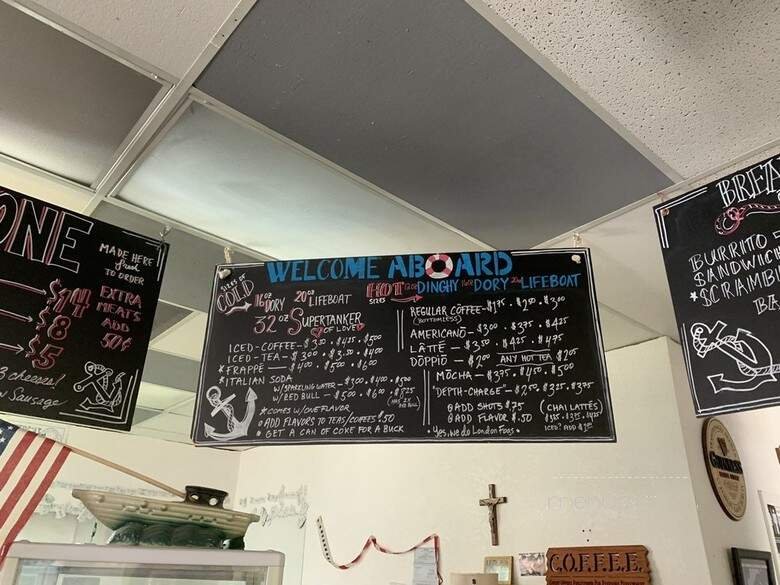 ONE
MADE HERE
fresh
TO ORDER
EXTRA
MEATS
ADD
50¢
$14
$8
$5
3 cheeses!
Sausage
WELCOME ABOARD
SIZES OF COLD
16oz DORY
20oz LIFEBOAT
32oz SUPERTANKER
OF LOVE
ICED-COFFEE-$3.50 . $4.25 . $5.00
ICED-TEA-$3.00 . $3.50 . $4.00
*FRAPPÉ - $4.00 . $5.00 . $6.00
*ITALIAN SODA
W/SPARKLING WATER-$3.00 . $4.00 . $5.00
W/RED BULL - $5.00 . $6.00 . $8.25
*COMES W/ONE FLAVOR
ADD FLAVORS TO TEAS/COFFEES .50
GET A CAN OF COKE FOR A BUCK
HOT SIZES 12oz DINGHY 16oz DORY 20oz LIFEBOAT
REGULAR COFFEE-$1.75 . $2.50 . $3.00
(BOTTOMLESS)
AMERICANO - $3.00 . $3.75 . $4.25
LÂTTÉ - $3.50 . $4.25 . $4.75
DOPPIO - $2.00 ANY HOT TEA $2.05
MOCHA - $3.75 . $4.50 . $5.00
"DEPTH-CHARGE"-$2.50 . $3.25 . $3.75
ADD SHOTS $.75
ADD FLAVOR $.50
(CHAI LATTÉS)
ICED? ADD
• Yes, we do London Fogs •
BURRITO
SANDWICH
*SCRAMB
GUINNESS
C.O.F.F.E.E.